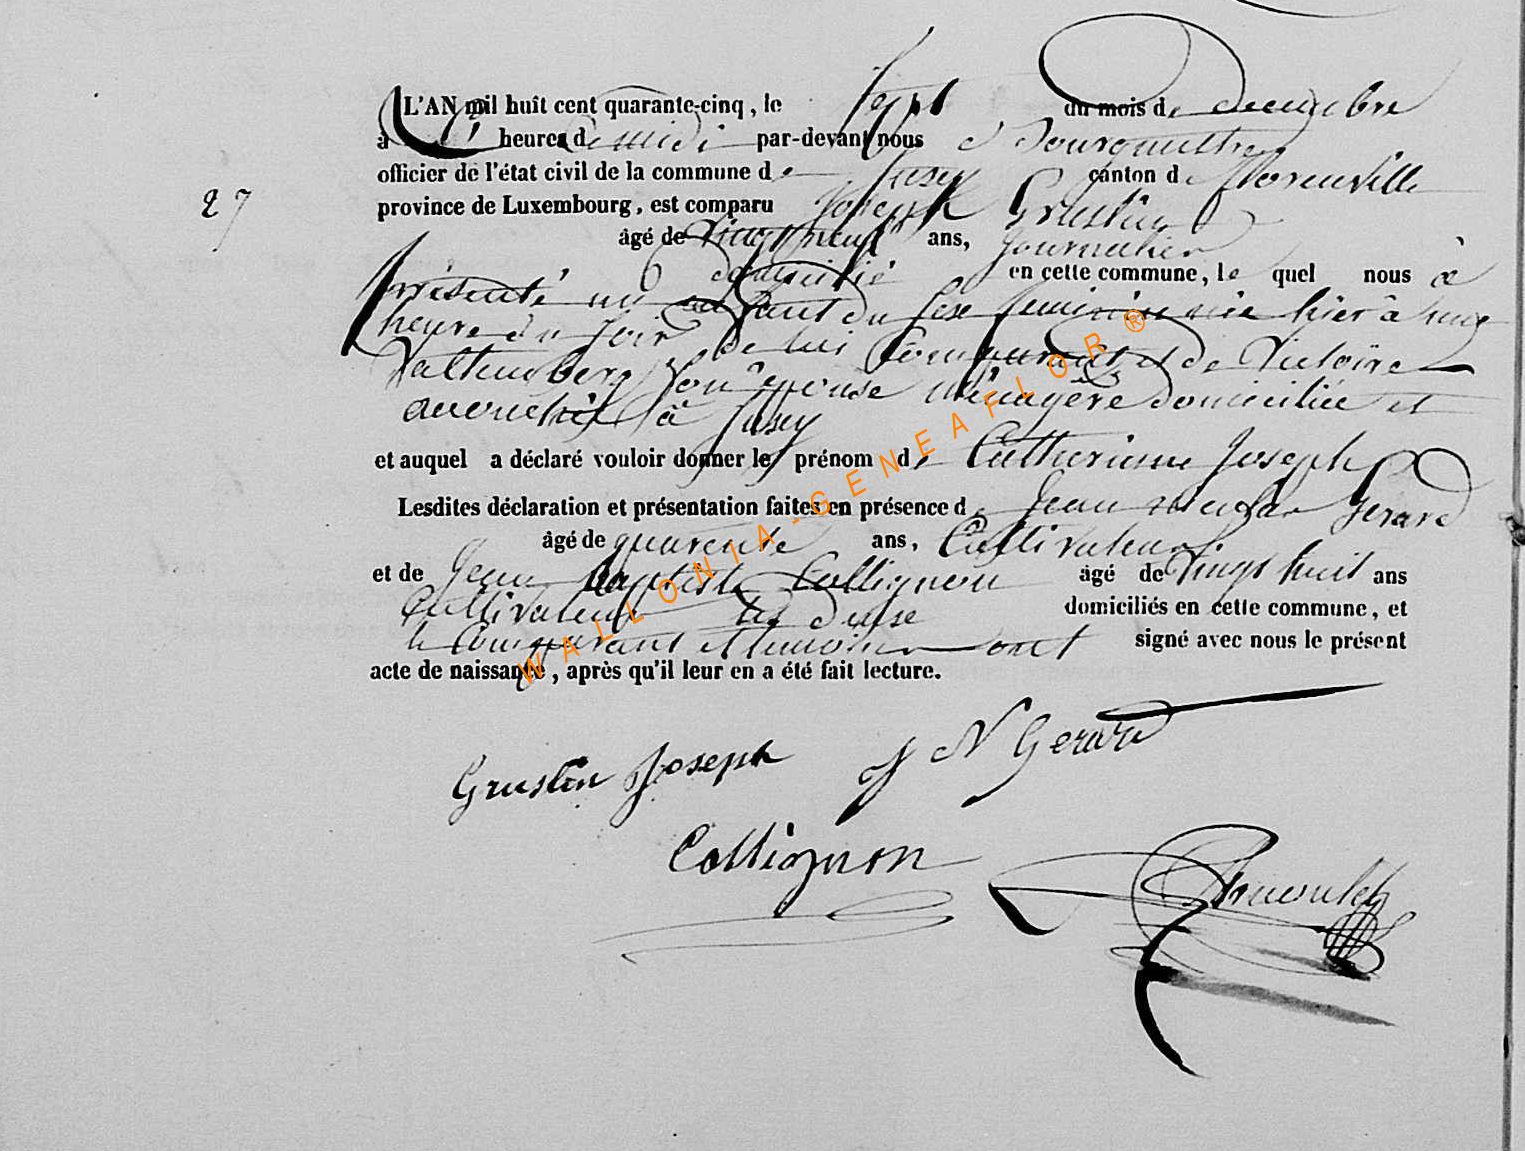 L'AN mil huit cent quarante-cinq, le sept du mois de decembre
à heures de midi par-devant nous Bourgmestre
officier de l'état civil de la commune de Jusey canton de
province de Luxembourg, est comparu Joseph Grustin
27
âgé de Vingt neuf ans, Journalier
domicilié en cette commune, le quel nous a
présenté un enfant du sexe feminin née hier à une
heure du soir de lui Comparant et de Victoire
son épouse Ménagère domiciliée et
accouchée à Jusey
et auquel a déclaré vouloir donner les prénom de Catherinne Joseph
Lesdites déclaration et présentation faites en présence de Jean Gerard
âgé de quarente ans, Cultivateur
et de Jean Baptiste Collignon âgé de Vingt huit ans
Cultivateur les deux domiciliés en cette commune, et
le Comparant et temoins ont signé avec nous le présent
acte de naissance, après qu'il leur en a été fait lecture.
Grustin Joseph J N Gerard
Collignon
WALLONIA-GENEAFLOR®